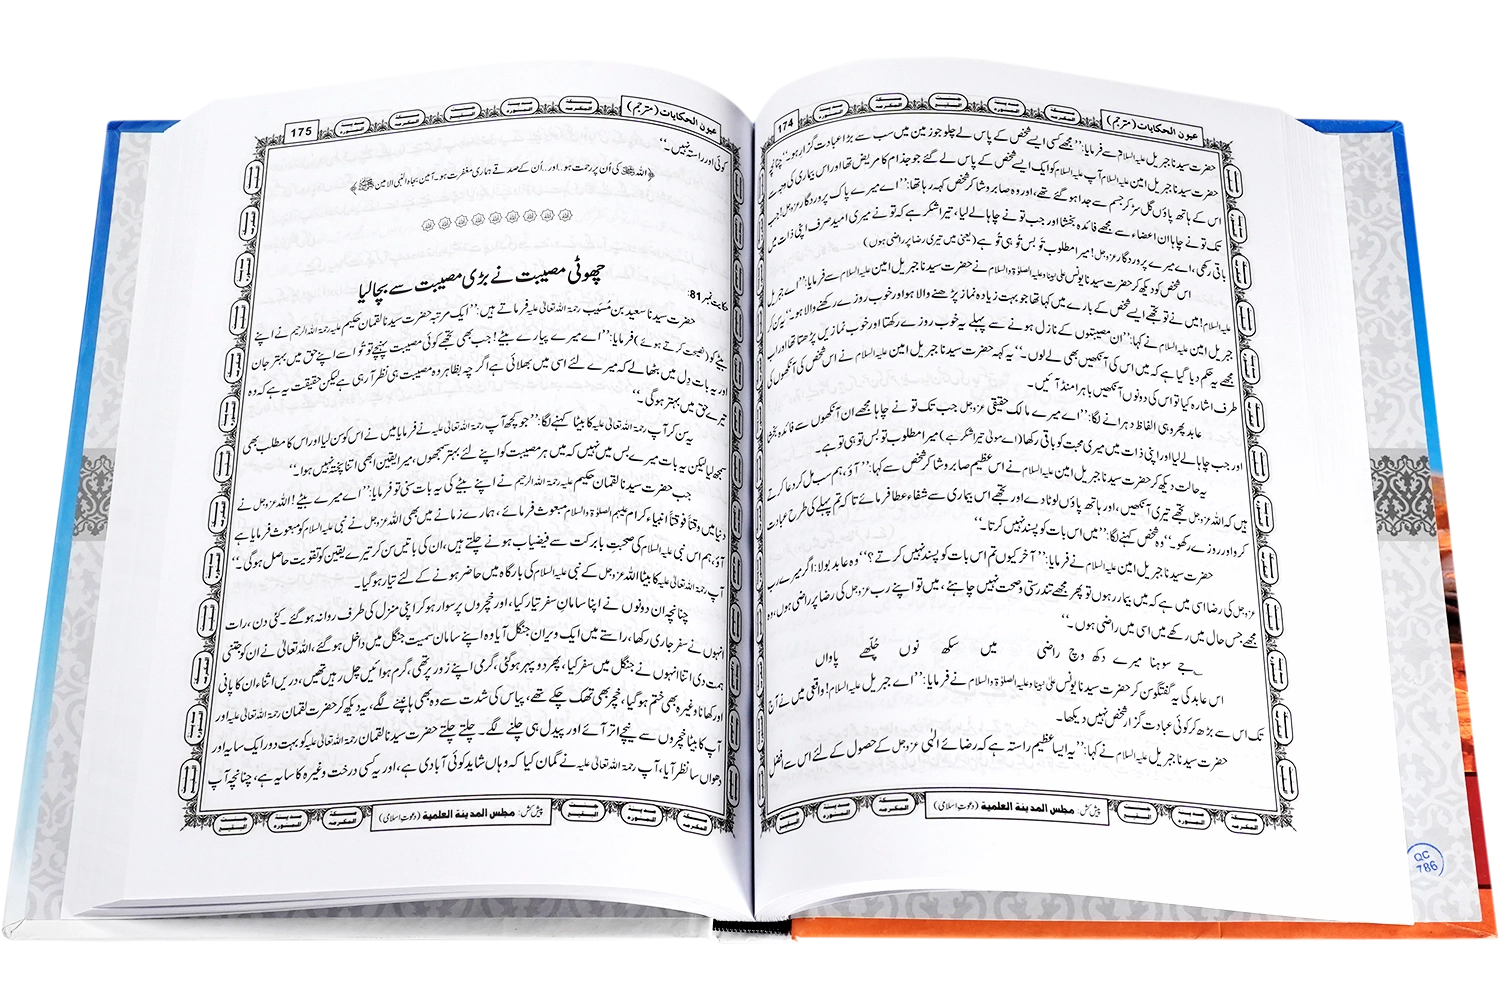 عیون الحکایات (مترجم)
174
حضرت سیدنا جبریل علیہ السلام سے فرمایا: ’’مجھے کسی ایسے شخص کے پاس لے چلو جو زمین میں سب سے بڑا عبادت گزار ہو۔‘‘ چنانچہ
حضرت سیدنا جبریل امین علیہ السلام آپ علیہ السلام کو ایک ایسے شخص کے پاس لے گئے جو جذام کا مریض تھا اور اس بیماری کی وجہ سے
اس کے ہاتھ پاؤں گل سڑ کر جسم سے جدا ہو گئے تھے، اور وہ صابر و شاکر شخص کہہ رہا تھا: ’’اے میرے پاک پروردگار عزوجل! جب
تک تو نے چاہا ان اعضاء سے مجھے فائدہ بخشا اور جب تو نے چاہا لے لیا، تیرا شکر ہے کہ تو نے میری امید صرف اپنی ذات میں
باقی رکھی، اے میرے پروردگار عزوجل! میرا مطلوب تو بس تُو ہی تُو ہے (یعنی میں تیری رضا پر راضی ہوں)
اس شخص کو دیکھ کر حضرت سیدنا یونس علیٰ نبینا وعلیہ الصلوٰۃ والسلام نے حضرت سیدنا جبریل امین علیہ السلام سے فرمایا: ’’اے جبریل
علیہ السلام! میں نے تو تجھے ایسے شخص کے بارے میں کہا تھا جو بہت زیادہ نماز پڑھنے والا ہو اور خوب روزے رکھنے والا ہو۔‘‘ یہ سن کر
جبریل امین علیہ السلام نے کہا: ’’ان مصیبتوں کے نازل ہونے سے پہلے یہ خوب روزے رکھتا اور خوب نمازیں پڑھتا تھا اور اب
مجھے یہ حکم دیا گیا ہے کہ میں اس کی آنکھیں بھی لے لوں۔‘‘ یہ کہہ حضرت سیدنا جبریل امین علیہ السلام نے اس شخص کی آنکھوں کی
طرف اشارہ کیا تو اس کی دونوں آنکھیں باہر امنڈ آئیں۔
عابد پھر وہی الفاظ دہرانے لگا: ’’اے میرے مالک حقیقی عزوجل جب تک تو نے چاہا مجھے ان آنکھوں سے فائدہ بخشا
اور جب چاہا لے لیا اور اپنی ذات میں میری محبت کو باقی رکھا (اے مولیٰ تیرا شکر ہے) میرا مطلوب تو بس تو ہی تو ہے۔
یہ حالت دیکھ کر حضرت سیدنا جبریل امین علیہ السلام نے اس عظیم صابر و شاکر شخص سے کہا: ’’آؤ، ہم سب مل کر دعا کرتے
ہیں کہ اللہ عزوجل تجھے تیری آنکھیں، اور ہاتھ پاؤں لوٹا دے اور تجھے اس بیماری سے شفاء عطا فرمائے تا کہ تم پہلے کی طرح عبادت
کرو اور روزے رکھو۔‘‘ وہ شخص کہنے لگا: ’’میں اس بات کو پسند نہیں کرتا۔‘‘
حضرت سیدنا جبریل امین علیہ السلام نے فرمایا: ’’آخر کیوں تم اس بات کو پسند نہیں کرتے؟‘‘ وہ عابد بولا: اگر میرے رب
عزوجل کی رضا اسی میں ہے کہ میں بیمار رہوں تو پھر مجھے تندرستی وصحت نہیں چاہئے، میں تو اپنے رب عزوجل کی رضا پر راضی ہوں، وہ
مجھے جس حال میں رکھے میں اسی میں راضی ہوں۔‘‘
جے سوہنا میرے دکھ وچ راضی میں سکھ نوں چُلّھے پاواں
اس عابد کی یہ گفتگو سن کر حضرت سیدنا یونس علیٰ نبینا وعلیہ الصلوٰۃ والسلام نے فرمایا: ’’اے جبریل علیہ السلام! واقعی میں نے آج
تک اس سے بڑھ کر کوئی عبادت گزار شخص نہیں دیکھا۔
حضرت سیدنا جبریل علیہ السلام نے کہا: ’’یہ ایسا عظیم راستہ ہے کہ رضائے الٰہی عزوجل کے حصول کے لئے اس سے افضل
پیش کش: مجلس المدینۃ العلمیۃ (دعوت اسلامی)
عیون الحکایات (مترجم)
175
کوئی اور راستہ نہیں۔‘‘
﴿اللہ عزوجل کی اُن پر رحمت ہو..اور.. اُن کے صدقے ہماری مغفرت ہو۔ آمین بجاہ النبی الامین ﷺ﴾
حکایت نمبر 81:
چھوٹی مصیبت نے بڑی مصیبت سے بچالیا
حضرت سیدنا سعید بن مُسَیَّب رحمۃ اللہ تعالیٰ علیہ فرماتے ہیں: ’’ایک مرتبہ حضرت سیدنا لقمان حکیم علیہ رحمۃ اللہ الرحیم نے اپنے
بیٹے کو (نصیحت کرتے ہوئے) فرمایا: ’’اے میرے پیارے بیٹے! جب بھی تجھے کوئی مصیبت پہنچے تو تُو اسے اپنے حق میں بہتر جان
اور یہ بات دِل میں بٹھا لے کہ میرے لئے اسی میں بھلائی ہے اگر چہ بظاہر وہ مصیبت ہی نظر آرہی ہے لیکن حقیقت یہ ہے کہ وہ
تیرے حق میں بہتر ہو گی۔‘‘
یہ سن کر آپ رحمۃ اللہ تعالیٰ علیہ کا بیٹا کہنے لگا: ’’جو کچھ آپ رحمۃ اللہ تعالیٰ علیہ نے فرمایا میں نے اس کو سن لیا اور اس کا مطلب بھی
سمجھ لیا لیکن یہ بات میرے بس میں نہیں کہ میں ہر مصیبت کو اپنے لئے بہتر سمجھوں، میرا یقین ابھی اتنا پختہ نہیں ہوا۔‘‘
جب حضرت سیدنا لقمان حکیم علیہ رحمۃ اللہ الرحیم نے اپنے بیٹے کی یہ بات سنی تو فرمایا: ’’اے میرے بیٹے! اللہ عزوجل نے
دنیا میں وقتاً فوقتاً انبیاء کرام علیہم الصلوٰۃ والسلام مبعوث فرمائے، ہمارے زمانے میں بھی اللہ عزوجل نے نبی علیہ السلام کو مبعوث فرمایا ہے
آؤ، ہم اس نبی علیہ السلام کی صحبتِ بابرکت سے فیضیاب ہونے چلتے ہیں، ان کی باتیں سن کر تیرے یقین کو تقویت حاصل ہوگی۔‘‘
آپ رحمۃ اللہ تعالیٰ علیہ کا بیٹا اللہ عزوجل کے نبی علیہ السلام کی بارگاہ میں حاضر ہونے کے لئے تیار ہو گیا۔
چنانچہ ان دونوں نے اپنا سامانِ سفر تیار کیا، اور خچروں پر سوار ہو کر اپنی منزل کی طرف روانہ ہو گئے۔ کئی دن، رات
انہوں نے سفر جاری رکھا، راستے میں ایک ویران جنگل آیا وہ اپنے سامان سمیت جنگل میں داخل ہو گئے، اللہ تعالیٰ نے ان کو جتنی
ہمت دی اتنا انہوں نے جنگل میں سفر کیا، پھر دوپہر ہو گئی، گرمی اپنے زور پر تھی، گرم ہوائیں چل رہیں تھیں، دریں اثناء ان کا پانی
اور کھانا وغیرہ بھی ختم ہو گیا، خچر بھی تھک چکے تھے، پیاس کی شدت سے وہ بھی ہانپنے لگے، یہ دیکھ کر حضرت لقمان رحمۃ اللہ تعالیٰ علیہ اور
آپ کا بیٹا خچروں سے نیچے اتر آئے اور پیدل ہی چلنے لگے۔ چلتے چلتے حضرت سیدنا لقمان رحمۃ اللہ تعالیٰ علیہ کو بہت دور ایک سایہ اور
دھواں سا نظر آیا، آپ رحمۃ اللہ تعالیٰ علیہ نے گمان کیا کہ وہاں شاید کوئی آبادی ہے، اور یہ کسی درخت وغیرہ کا سایہ ہے، چنانچہ آپ
پیش کش: مجلس المدینۃ العلمیۃ (دعوت اسلامی)
QC
786